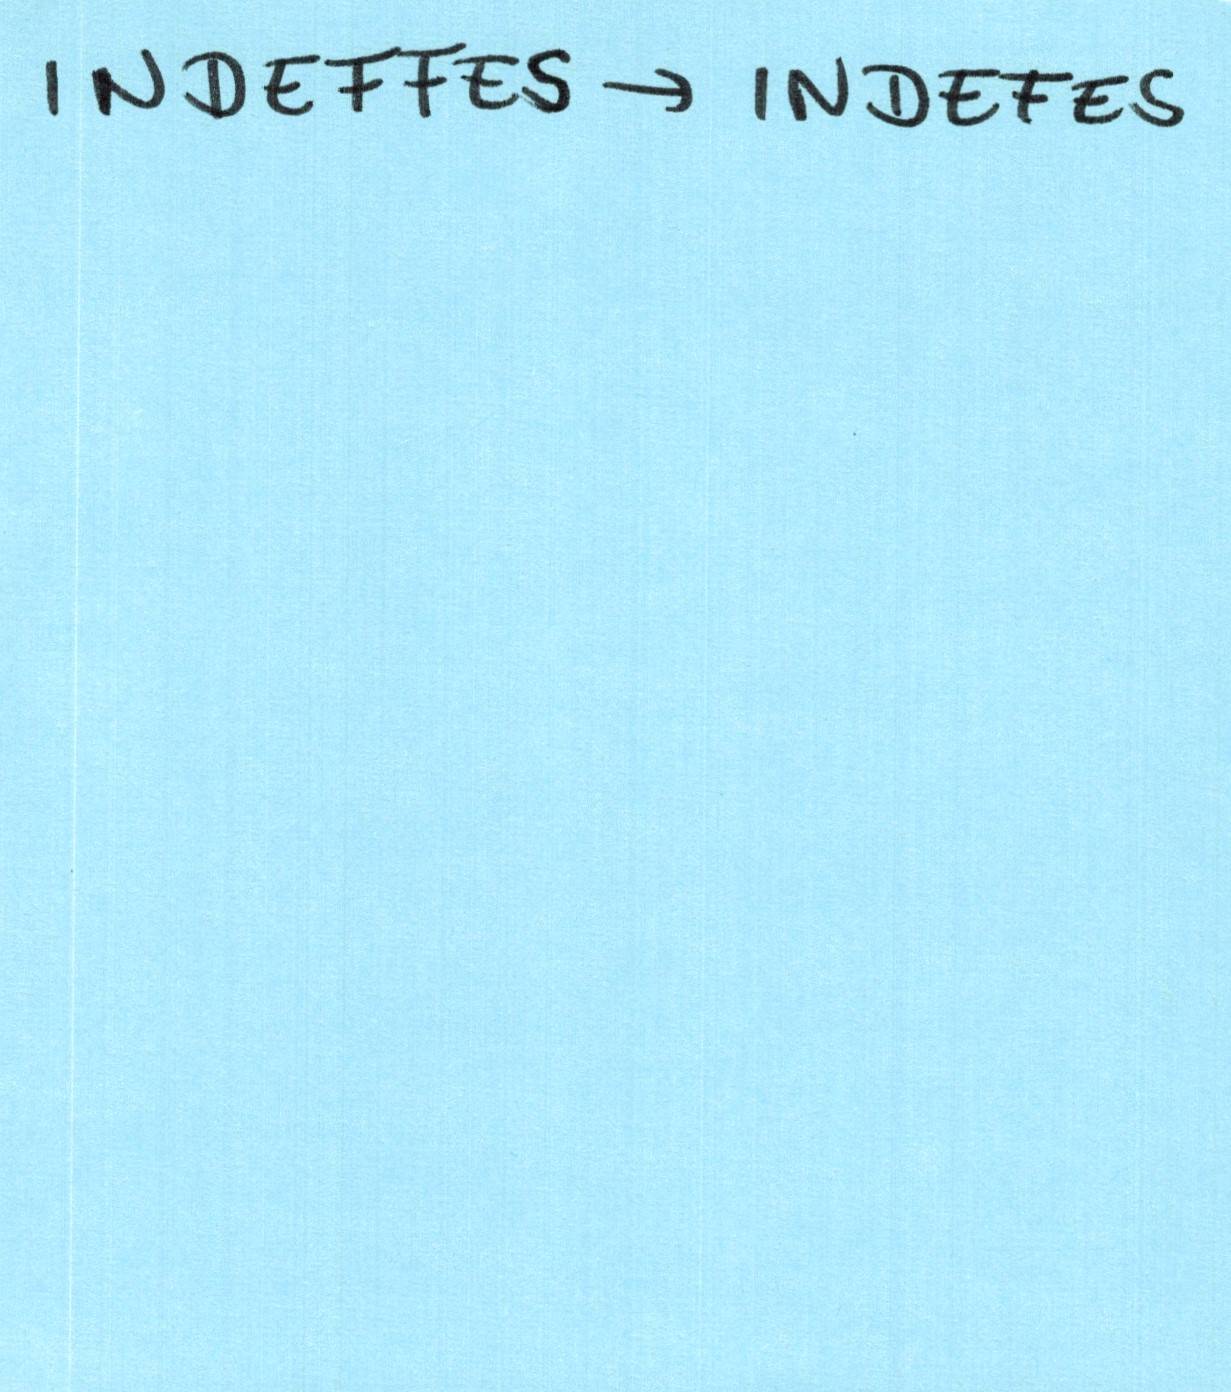 INDEFFES → INDEFES